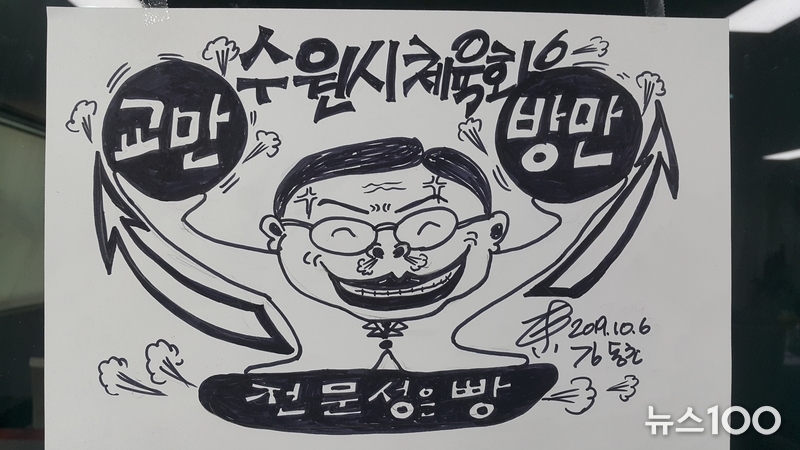 수원시체육회
교만
방만
2019.10.6
김동초
전문성은 빵
뉴스100